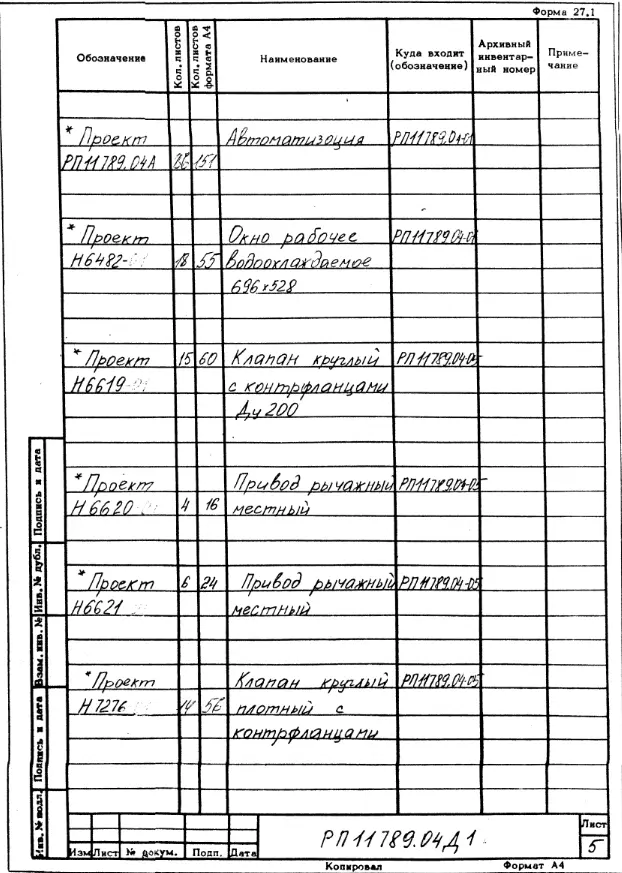 Форма 27.1
Обозначение Кол. листов Кол. листов формата А4 Наименование Куда входит (обозначение) Архивный инвентарный номер Примечание
* Проект Автоматизация РП11789.04-01
РП11789.04А 151
* Проект Окно рабочее РП11789.04-01
Н6482- 18 55 водоохлаждаемое
696х528
* Проект 15 60 Клапан круглый РП11789.04-05
Н6619 с контрфланцами
Ду 200
* Проект Привод рычажный РП11789.04-05
Н6620 4 16 местный
* Проект 6 24 Привод рычажный РП11789.04-05
Н6621 местный
* Проект Клапан круглый РП11789.04-05
Н7276 14 56 плотный с
контрфланцами
Инв. № подл. Подпись и дата Взам. инв. № Инв. № дубл. Подпись и дата
РП11789.04Д1
Лист
5
Изм Лист № докум. Подп. Дата
Копировал Формат А4